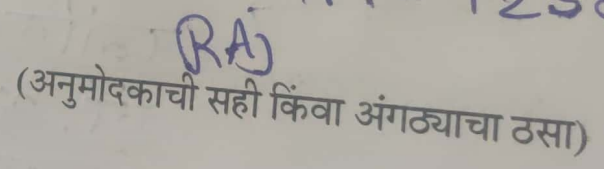 RAJ
(अनुमोदकाची सही किंवा अंगठ्याचा ठसा)